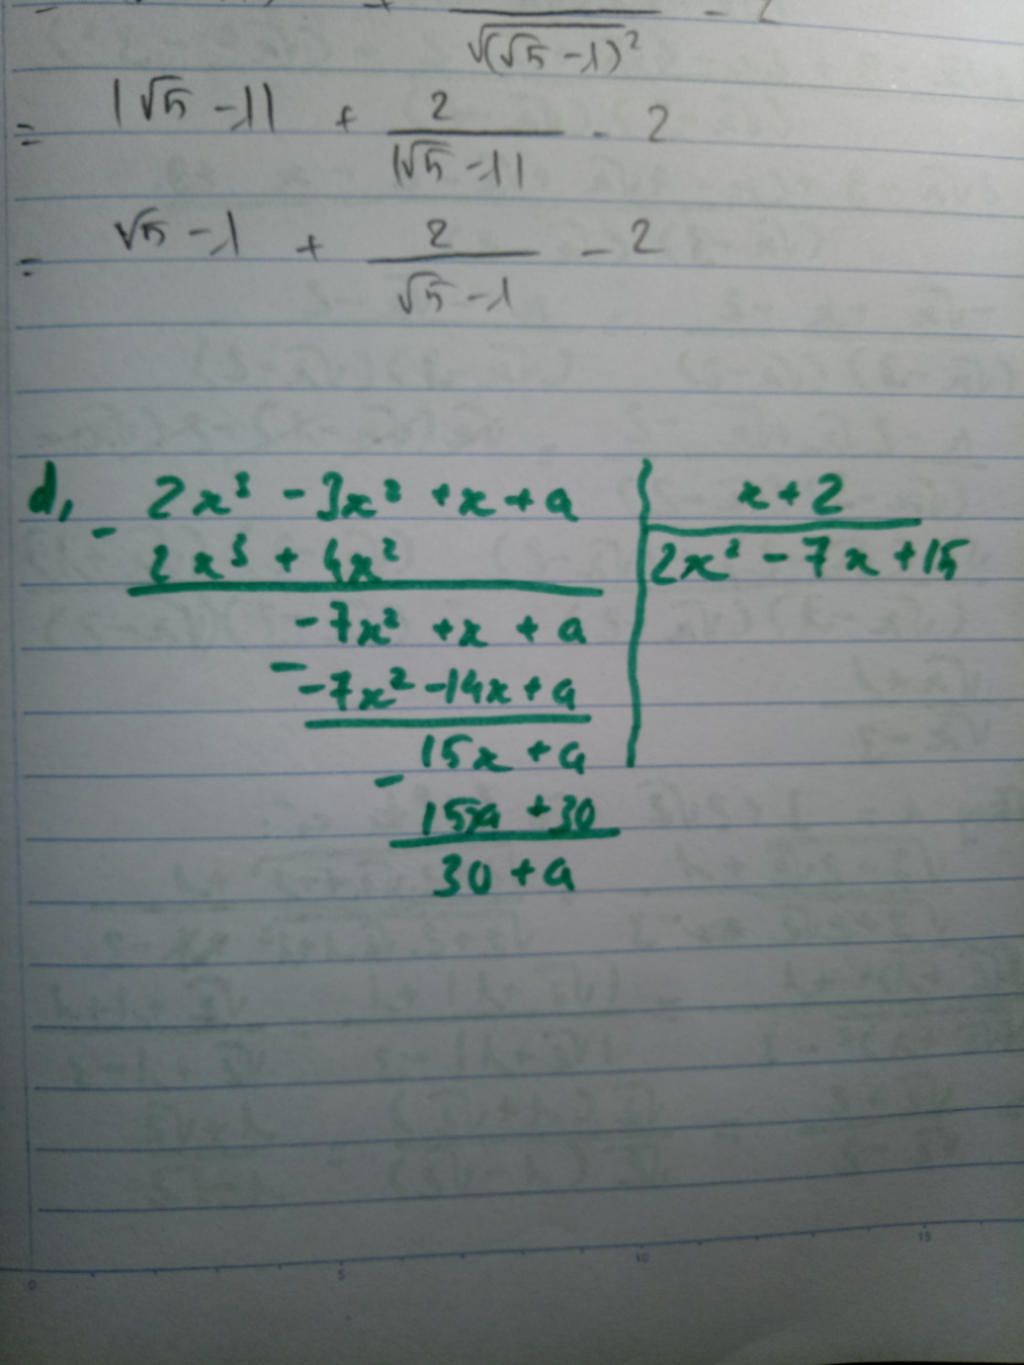 √(√5 -1)² - 2
= |√5 -1| + 2/|√5 -1| - 2
= √5 -1 + 2/(√5 -1) - 2
d, 2x³ - 3x² + x + a | x + 2
- 2x³ + 4x² | 2x² - 7x + 15
-7x² + x + a
- -7x² -14x + a
15x + a
- 15x + 30
30 + a
0 5 10 15